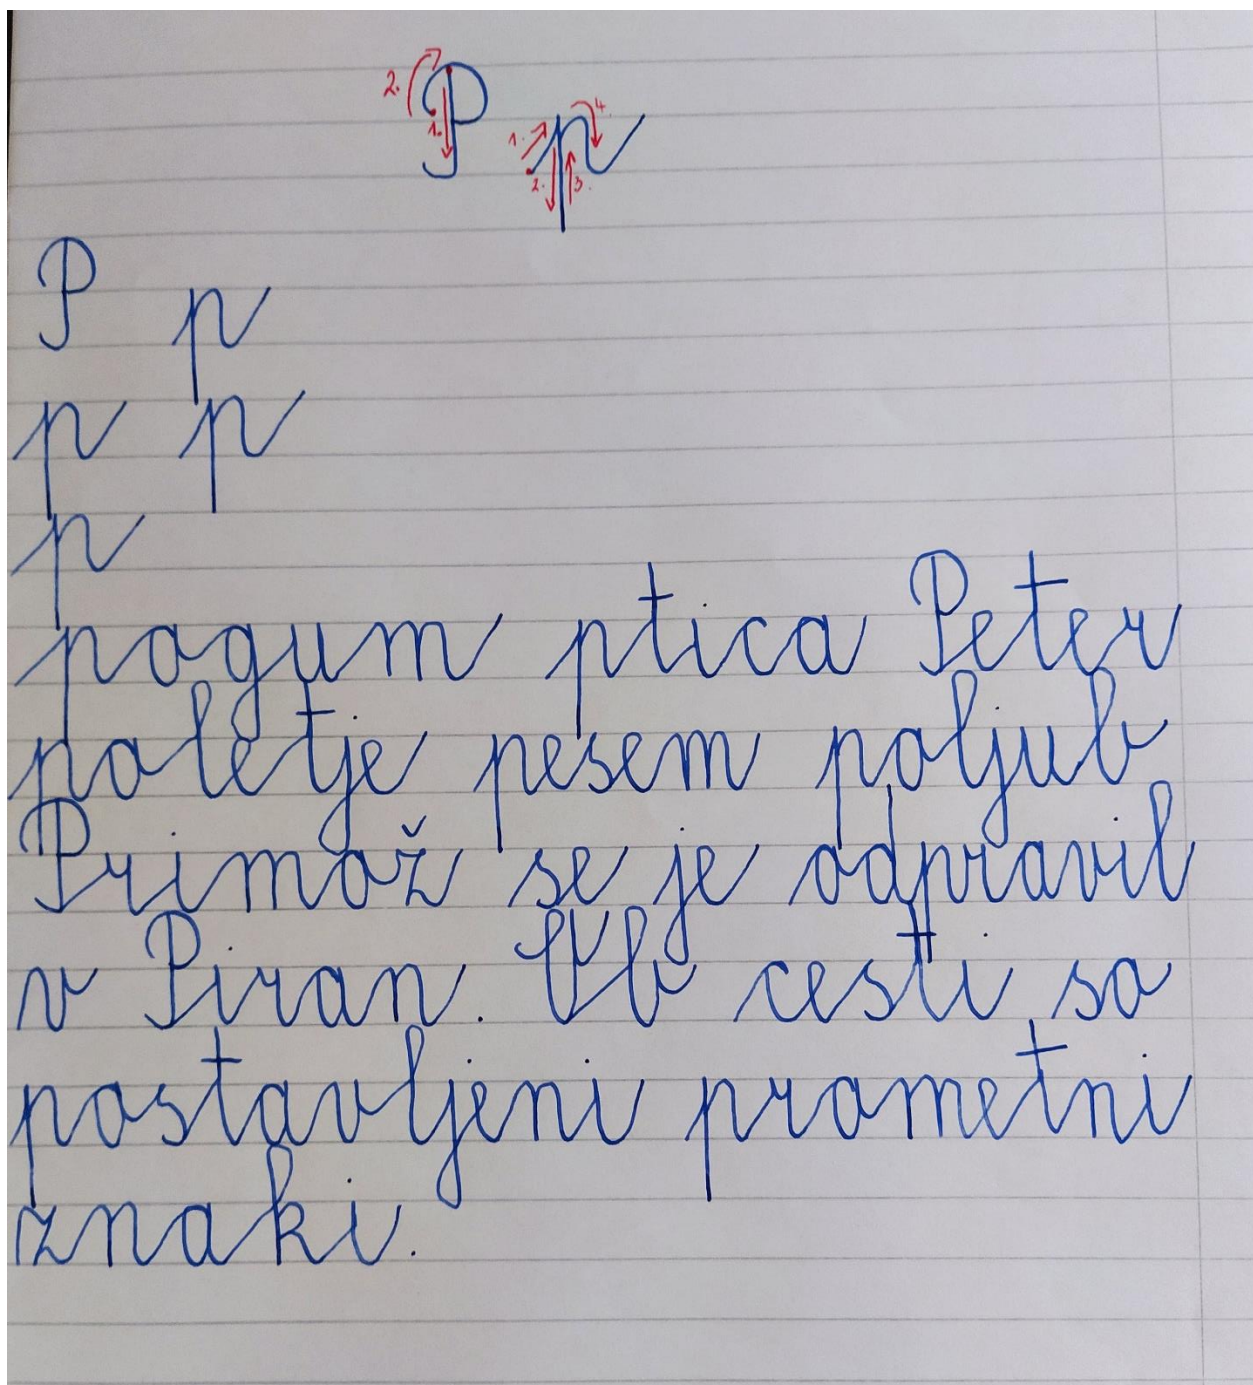 2. 1. P 1. 2. 3. 4. p
P p
p p
p
pogum ptica Peter
poletje pesem poljub
Primož se je odpravil
v Piran. Ob cesti so
postavljeni prometni
znaki.